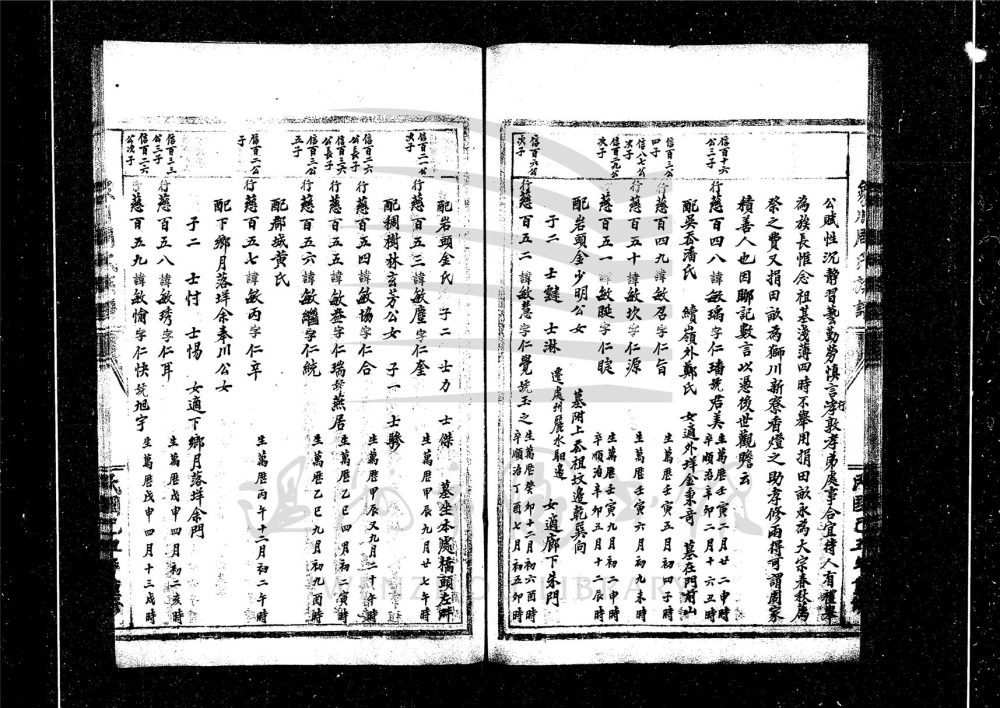 公賦性沉靜習藝勤勞慎言孝敦孝弟處事合宜待人有禮舉
為族長惟念祖基淺薄四時不舉用捐田畝永為大宗春秋薦
祭之費又捐田畝為獅川新寮香燈之助孝修兩得可謂周家
積善人也因聊記數言以憑後世觀瞻云
信百十六公三子
行慈百四八諱敏瑀字仁璠號君美
生萬歷壬寅二月廿二申時
卒順治辛卯二月十六丑時
配吳岙潘氏 續嶺外鄭氏 女適外垟金東奇 墓在門前山
信百三公四子
行慈百四九諱敏召字仁旨
生萬歷壬寅四月初四子時
信八七公次子
行慈百五十諱敏坎字仁源
生萬歷壬寅六月初九未時
信百三九公次子
行慈百五一諱敏眹字仁睫
生萬歷壬寅九月初二申時
卒順治辛卯五月十二辰時
配岩頭金少明公女 墓附上岙祖墳邊乾巽向
子二 士韃 士淋 遷處州麗水縣邊 女適廊下朱門
信百六公次子
行慈百五二諱敏慧字仁覺號玉之
生萬歷癸卯十二月初六酉時
卒順治丁酉七月初五卯時
配岩頭金氏 子二 士力 士傑 墓坐本處橋頭左畔
信百二一公次子
行慈百五三諱敏塵字仁奎
生萬歷甲辰九月廿七午時
配稠樹林玄方公女 子一 士驂
信百二六公長子
行慈百五四諱敏協字仁合
生萬歷甲辰又九月二十午時
信百三六公長子
行慈百五五諱敏益字仁瑞號燕居
生萬歷乙巳四月初二寅時
信百三公五子
行慈百五六諱敏繼字仁統
生萬歷乙巳九月初九酉時
配郡城黃氏
信百二公子
行慈百五七諱敏丙字仁辛
生萬歷丙午十二月初二午時
配下鄉月落垟余奉川公女
子二 士忖 士惕 女適下鄉月落垟余門
信百三二公三子
行慈百五八諱敏琇字仁耳
生萬歷戊申四月初二亥時
信百二六公次子
行慈百五九諱敏愉字仁快號旭宇
生萬歷戊申四月十三戌時
WENZHOU LIBRARY